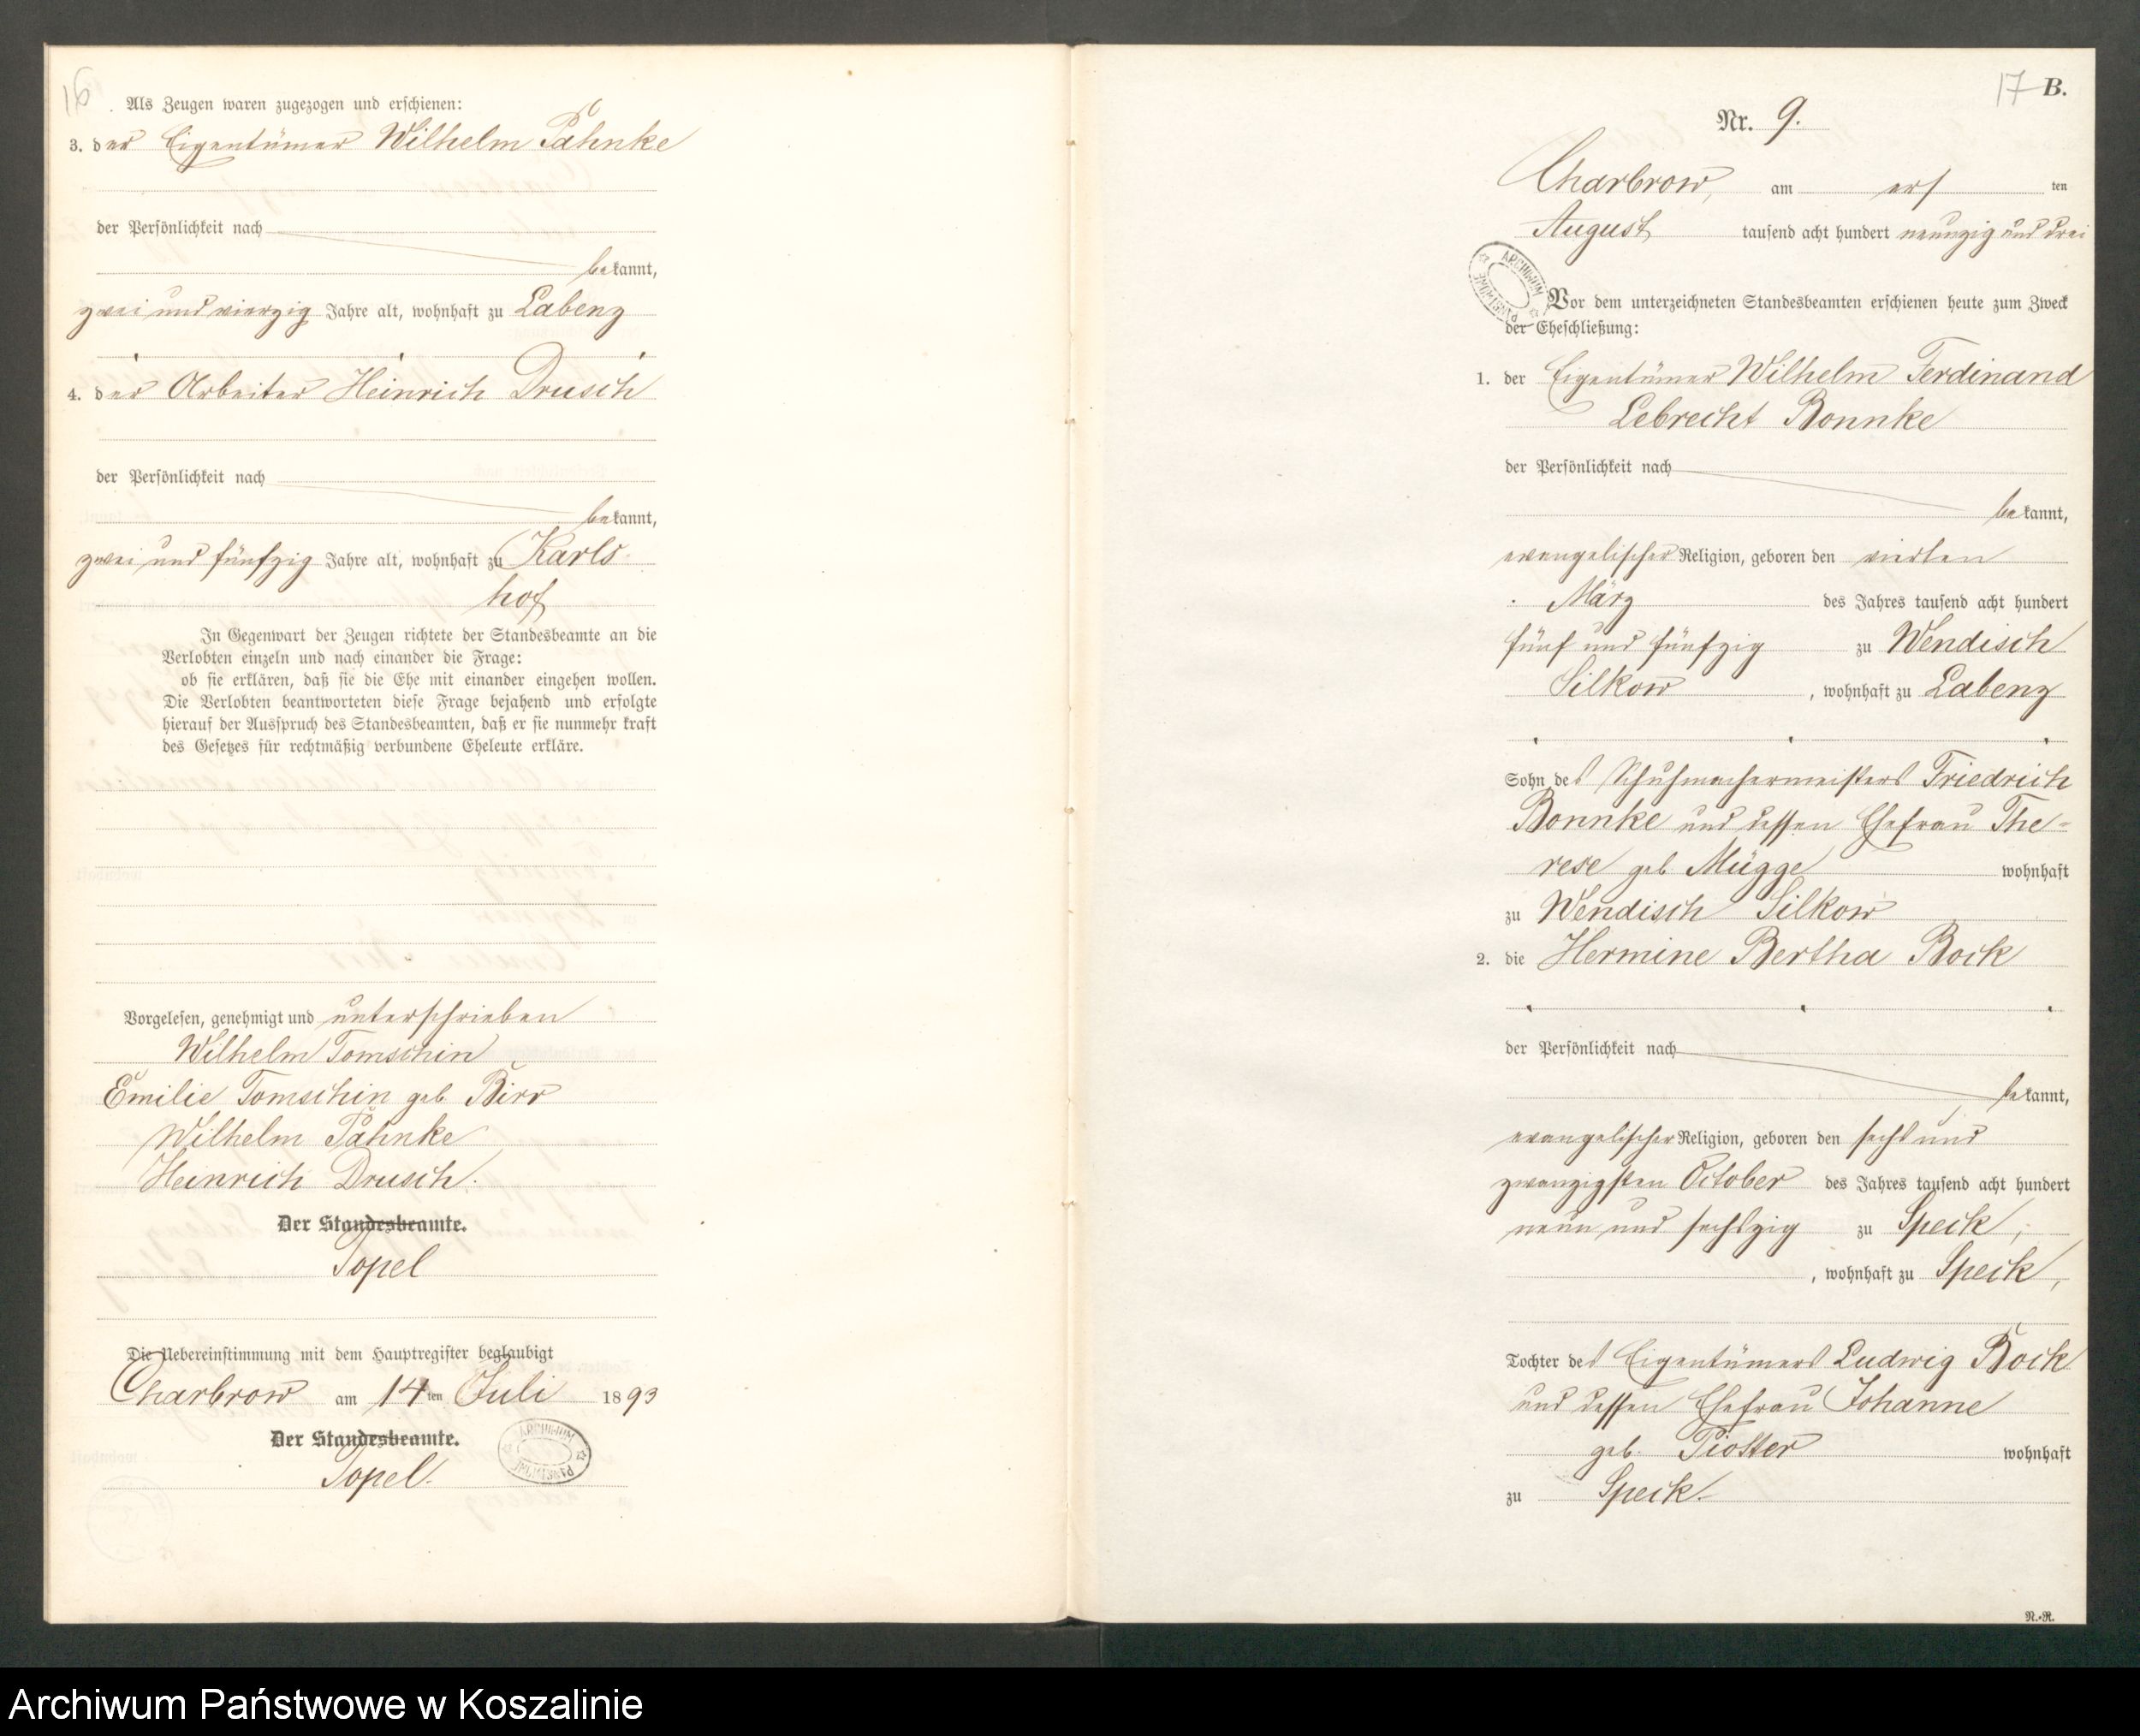 16
Als Zeugen waren zugezogen und erschienen:
3. der Eigentümer Wilhelm Pahnke
der Persönlichkeit nach
bekannt,
zwei und vierzig Jahre alt, wohnhaft zu Labenz
4. der Arbeiter Heinrich Drusch
der Persönlichkeit nach
bekannt,
zwei und fünfzig Jahre alt, wohnhaft zu Karls-
hof
In Gegenwart der Zeugen richtete der Standesbeamte an die
Verlobten einzeln und nach einander die Frage:
ob sie erklären, daß sie die Ehe mit einander eingehen wollen.
Die Verlobten beantworteten diese Frage bejahend und erfolgte
hierauf der Ausspruch des Standesbeamten, daß er sie nunmehr kraft
des Gesetzes für rechtmäßig verbundene Eheleute erkläre.
Vorgelesen, genehmigt und unterschrieben
Wilhelm Tomschin
Emilie Tomschin geb. Birr
Wilhelm Pahnke
Heinrich Drusch.
Der Standesbeamte.
Topel
Die Uebereinstimmung mit dem Hauptregister beglaubigt
Charbrow am 14ten Juli 1893
Der Standesbeamte.
Topel.
ARCHIWUM PAŃSTWOWE
17 B.
Nr. 9.
Charbrow, am ersten
August tausend acht hundert neunzig und drei
ARCHIWUM PAŃSTWOWE
Vor dem unterzeichneten Standesbeamten erschienen heute zum Zweck
der Eheschließung:
1. der Eigentümer Wilhelm Ferdinand
Lebrecht Bonnke
der Persönlichkeit nach
bekannt,
evangelischer Religion, geboren den vierten
März des Jahres tausend acht hundert
fünf und fünfzig zu Wendisch
Silkow, wohnhaft zu Labenz
Sohn des Schuhmachermeisters Friedrich
Bonnke und dessen Ehefrau The-
rese geb. Mügge wohnhaft
zu Wendisch Silkow
2. die Hermine Bertha Bock
der Persönlichkeit nach
bekannt,
evangelischer Religion, geboren den sechs und
zwanzigsten October des Jahres tausend acht hundert
neun und sechszig zu Speck,
, wohnhaft zu Speck,
Tochter des Eigentümers Ludwig Bock
und dessen Ehefrau Johanne
geb. Piotter wohnhaft
zu Speck.
N.-R.
Archiwum Państwowe w Koszalinie